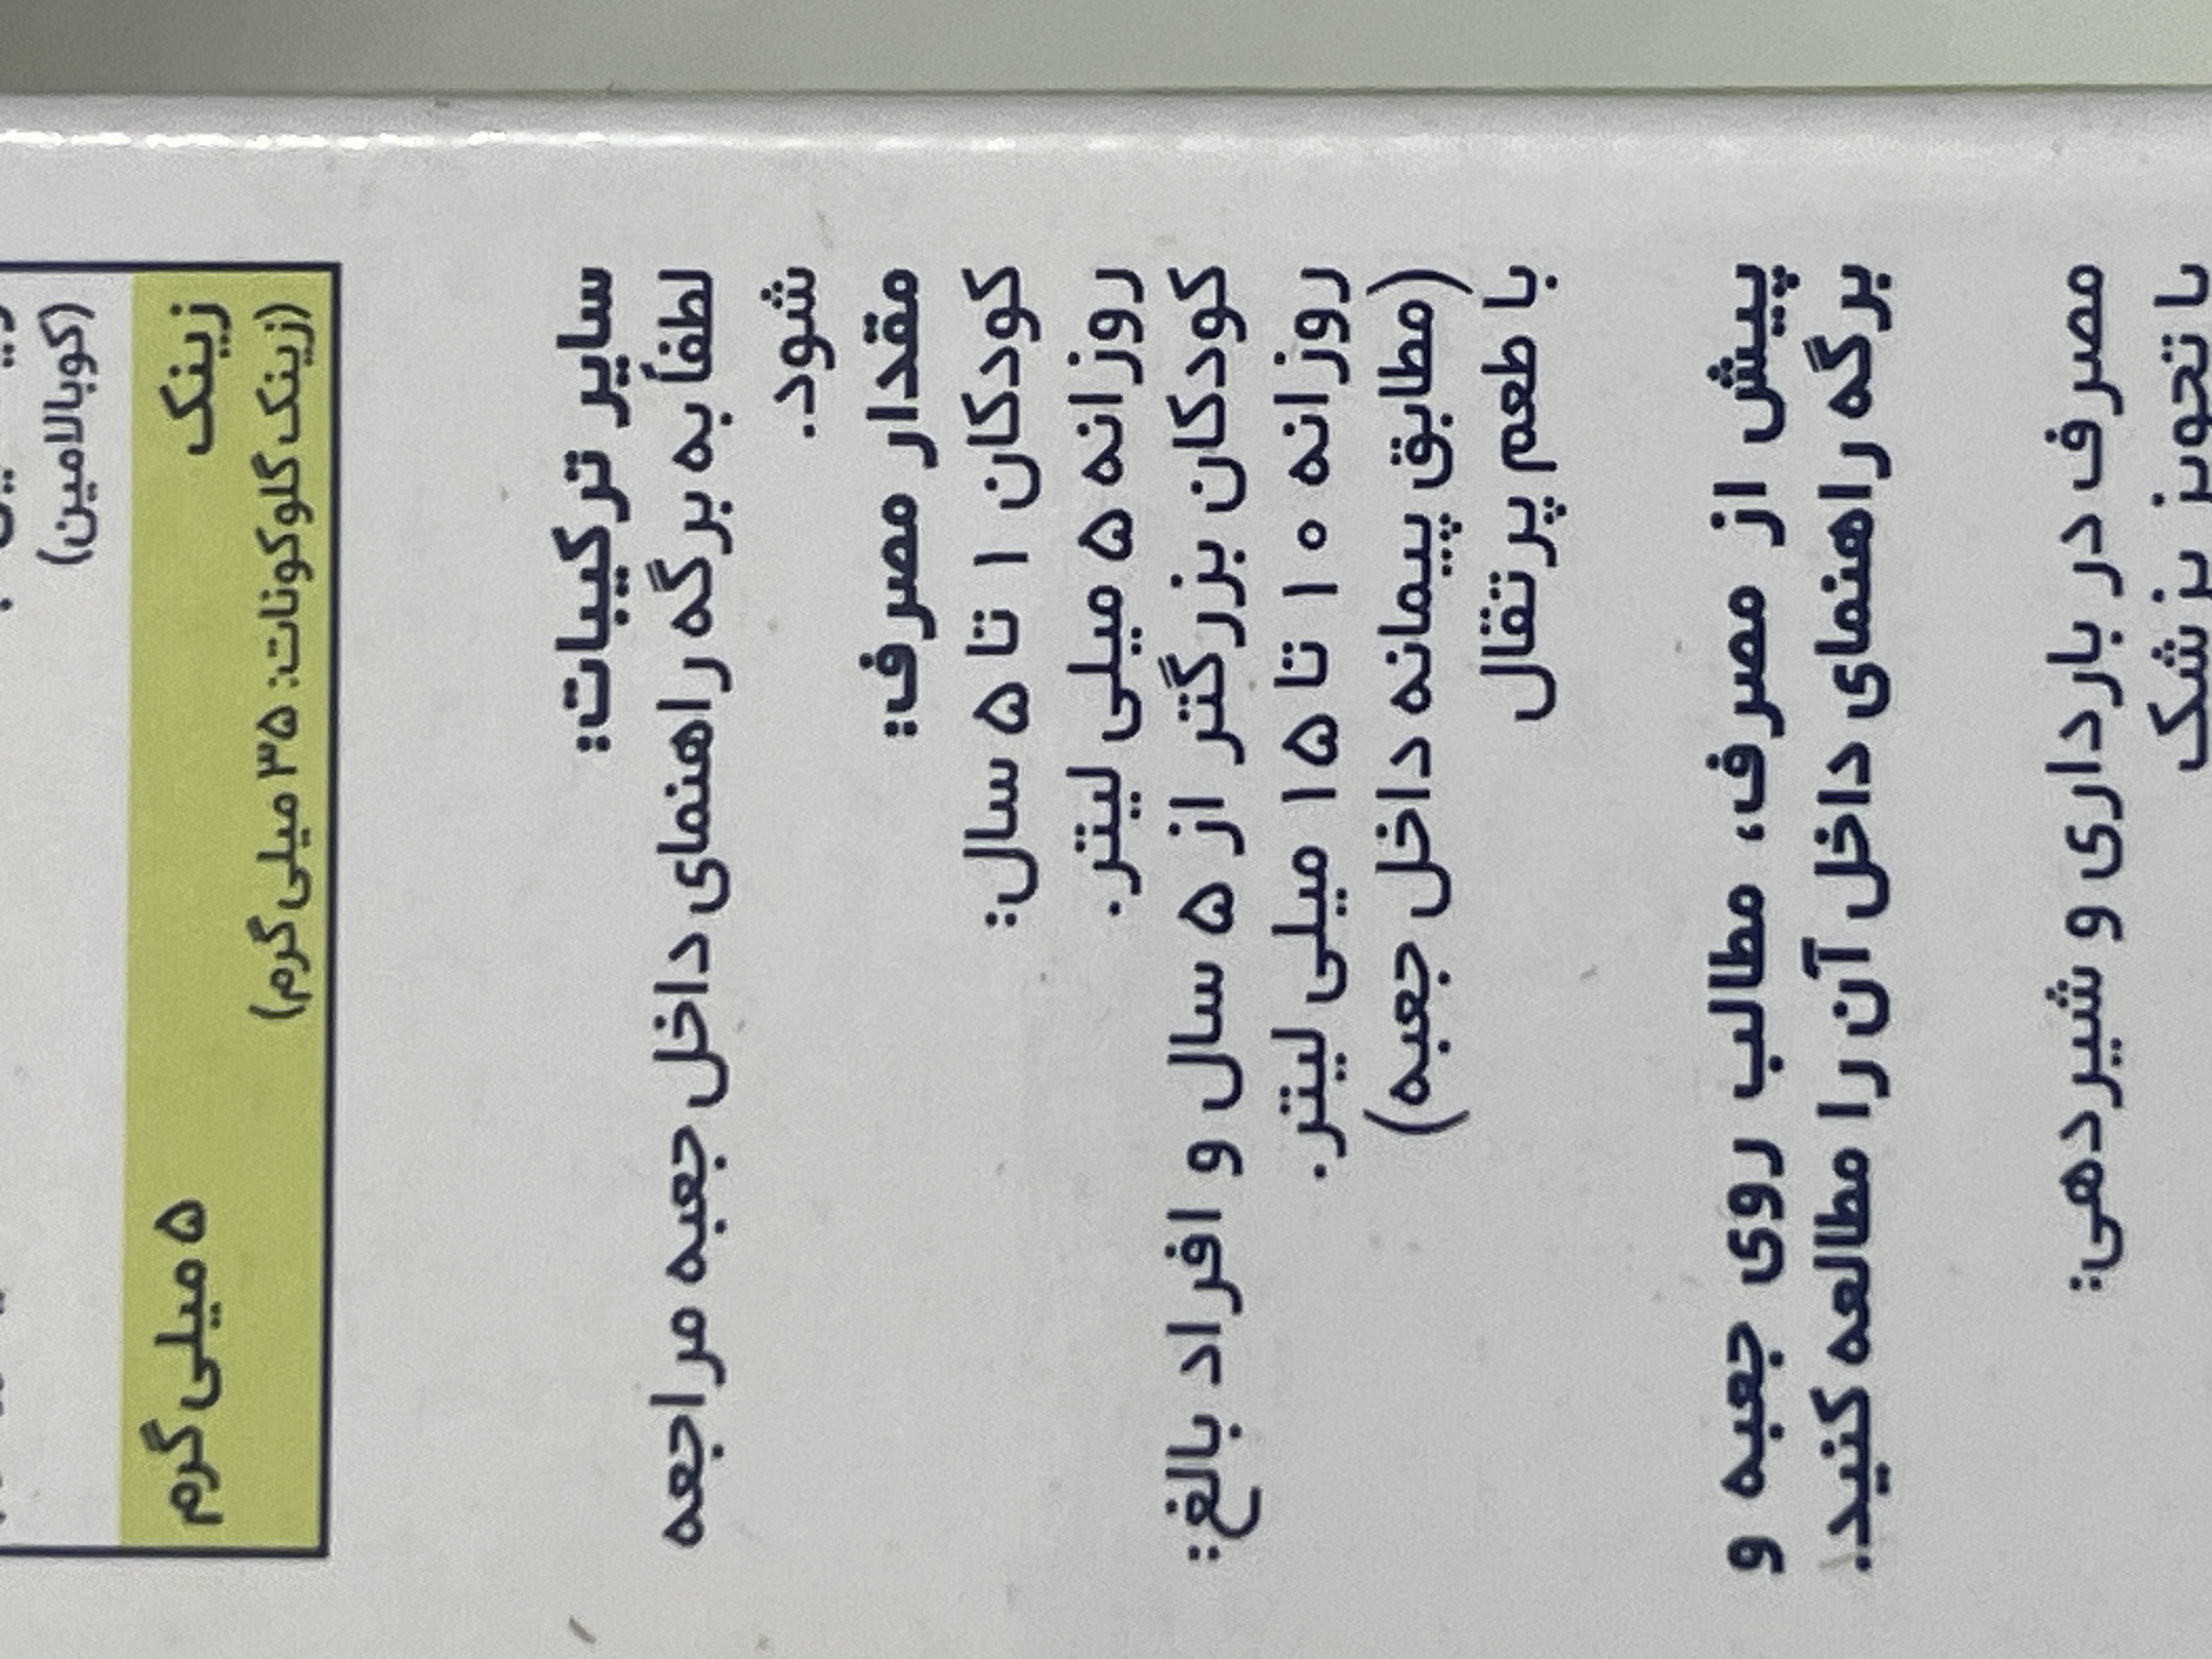 (کوبالامین)
زینک ۵ میلی‌گرم
(زینک گلوکونات: ۳۵ میلی‌گرم)
سایر ترکیبات:
لطفاً به برگه راهنمای داخل جعبه مراجعه
شود.
مقدار مصرف:
کودکان ۱ تا ۵ سال:
روزانه ۵ میلی لیتر.
کودکان بزرگتر از ۵ سال و افراد بالغ:
روزانه ۱۰ تا ۱۵ میلی لیتر.
(مطابق پیمانه داخل جعبه)
با طعم پرتقال
پیش از مصرف، مطالب روی جعبه و
برگه راهنمای داخل آن را مطالعه کنید.
مصرف در بارداری و شیردهی:
با تجویز پزشک